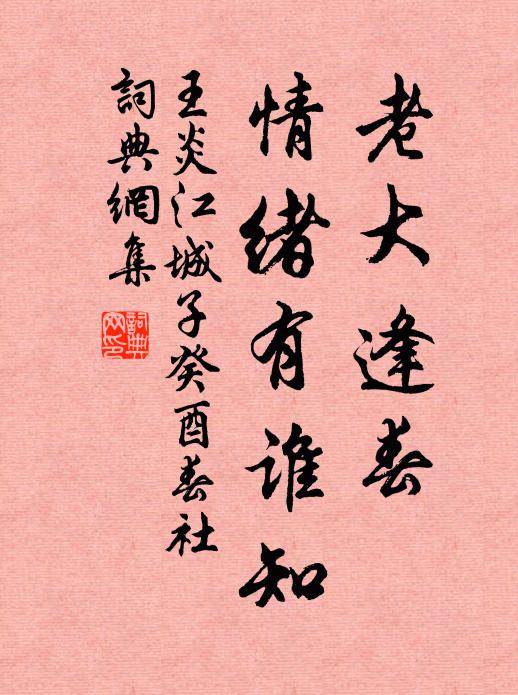 老大逢春
情緒有誰知
王炎江城子癸酉春社
詞典網集
詞典網印